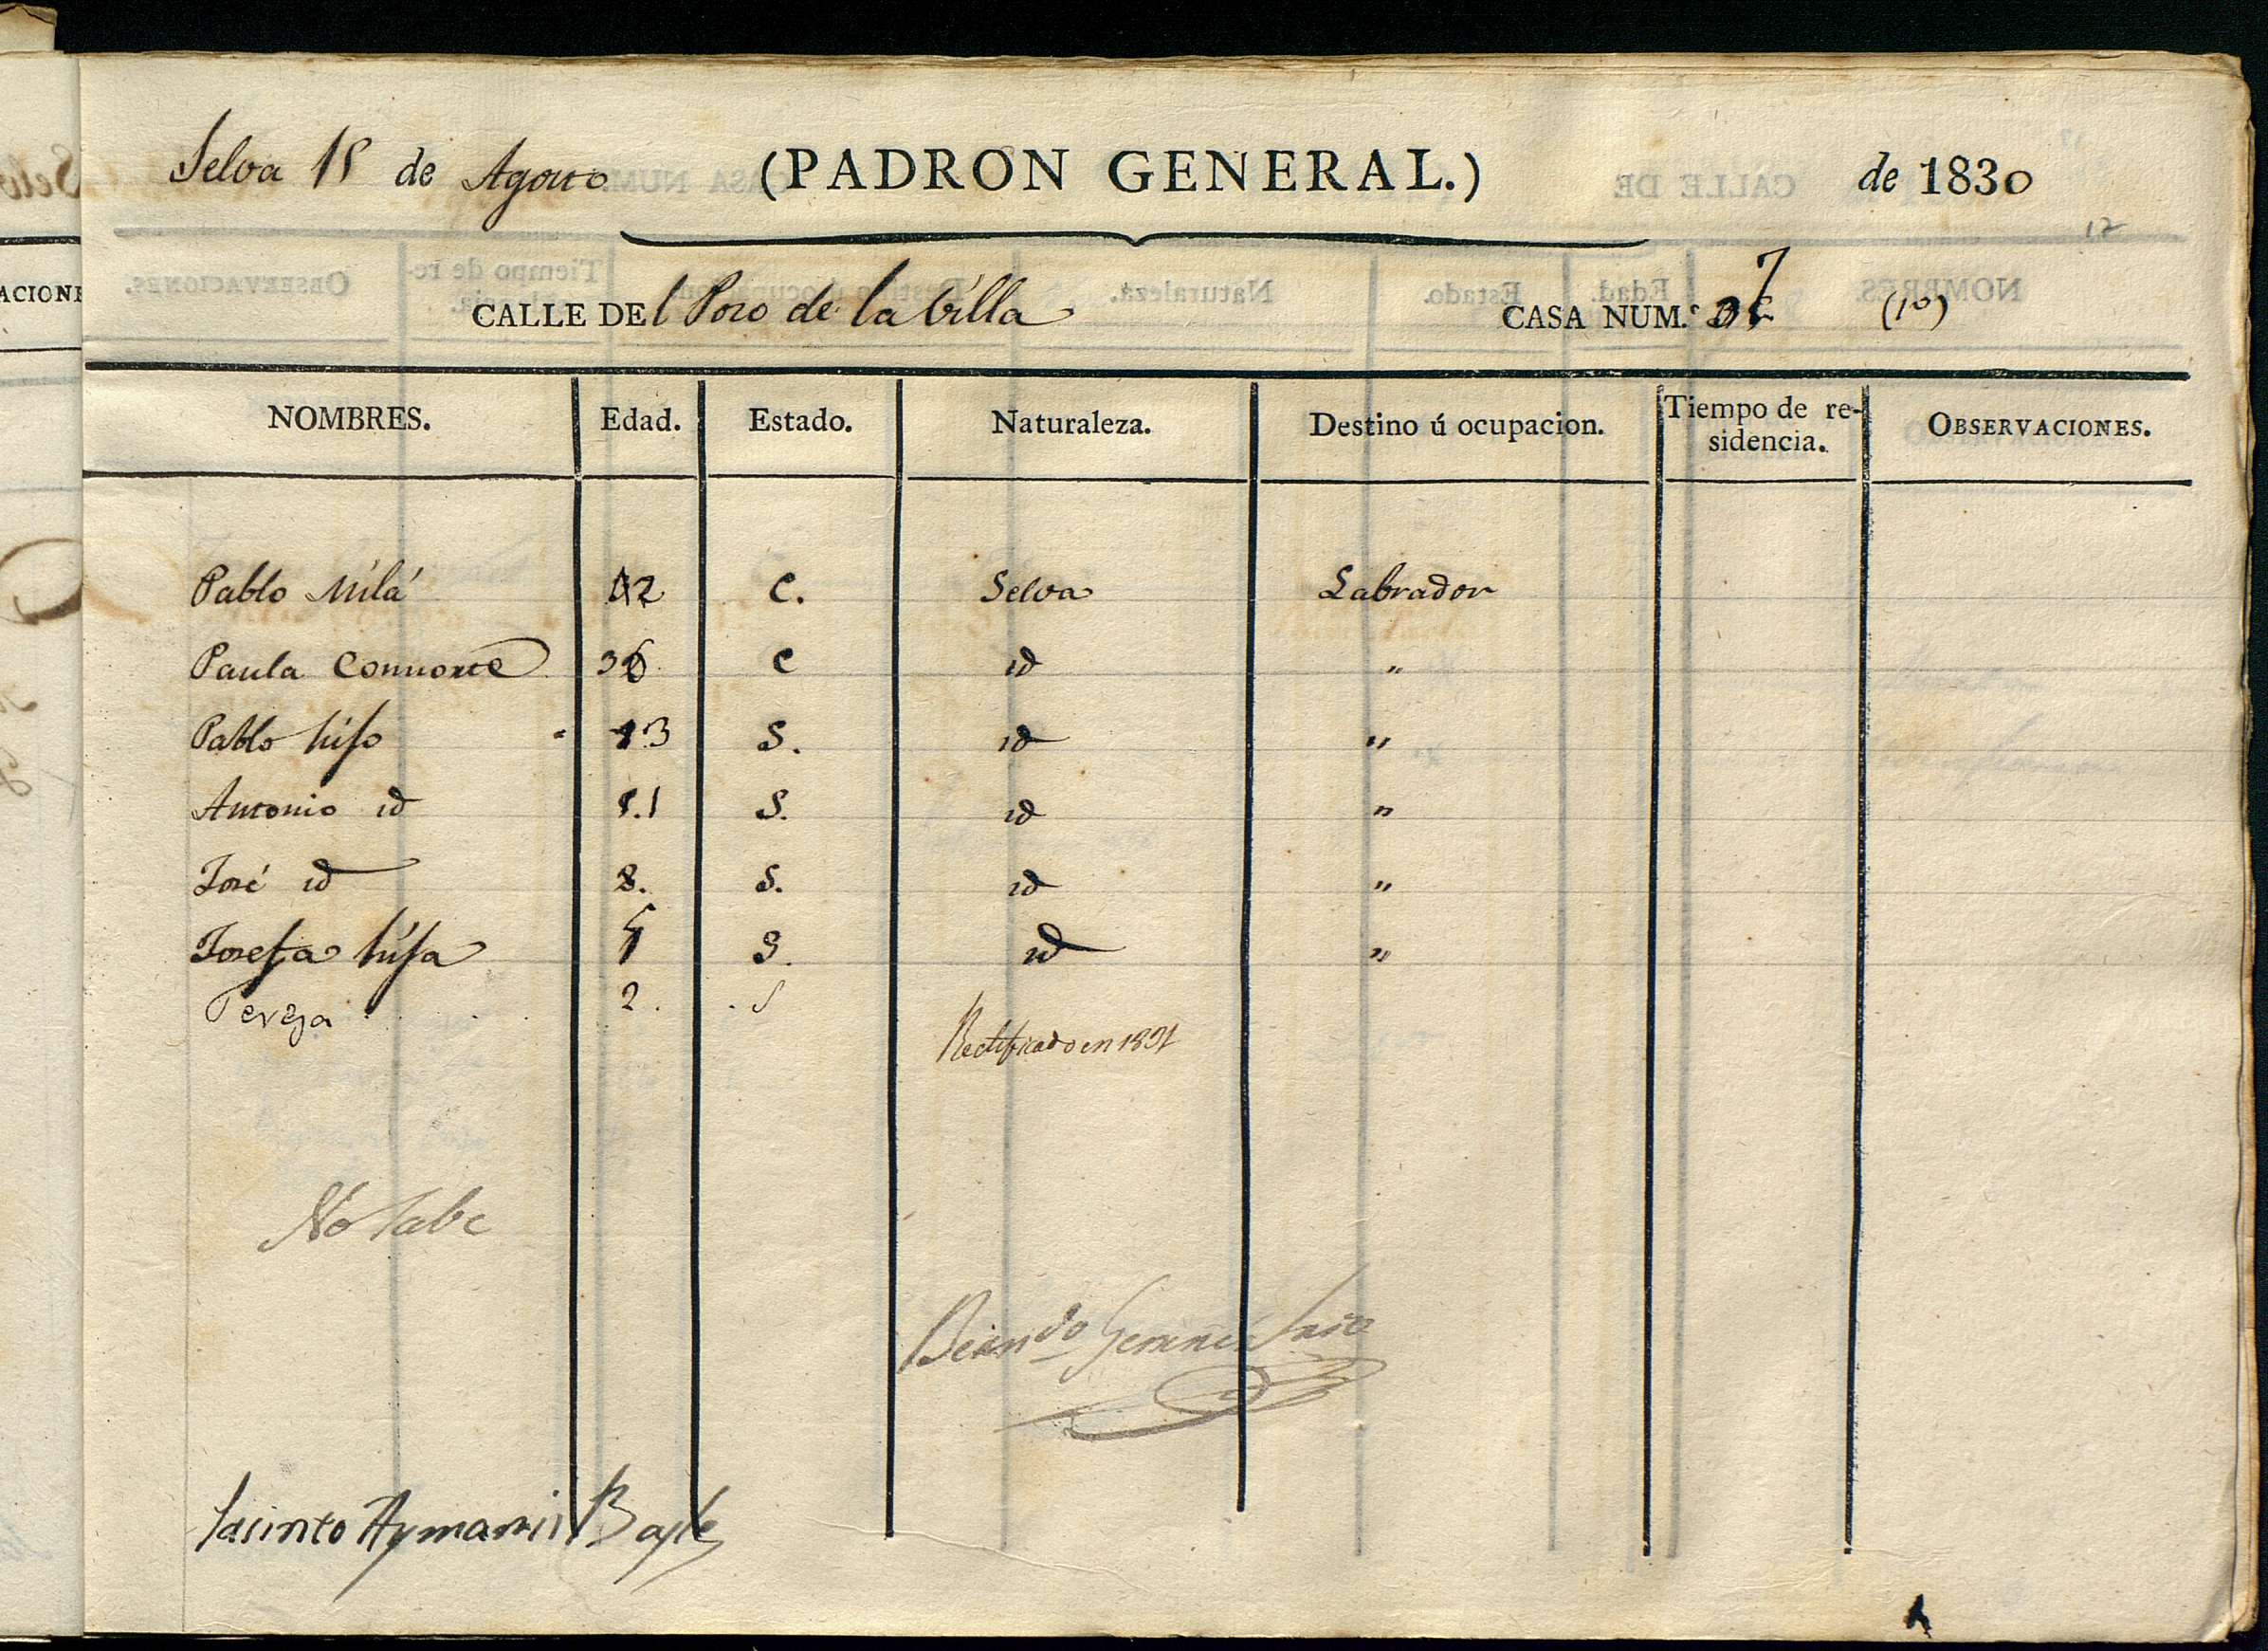 Selva 15 de Agosto (PADRON GENERAL.) de 1830
12
CALLE DEl Pozo de la Villa CASA NUM.º 7 (10)
NOMBRES. Edad. Estado. Naturaleza. Destino ú ocupacion. Tiempo de re-sidencia. OBSERVACIONES.
Pablo Milá 42 C. Selva Labrador
Paula 36 C id "
Pablo hijo 13 S. id "
Antonio id 11 S. id "
José id 8. S. id "
Josefa hija S. id "
Tereza 2. S
Rectificado en 1831
No sabe
Jacinto Aymami Bayle